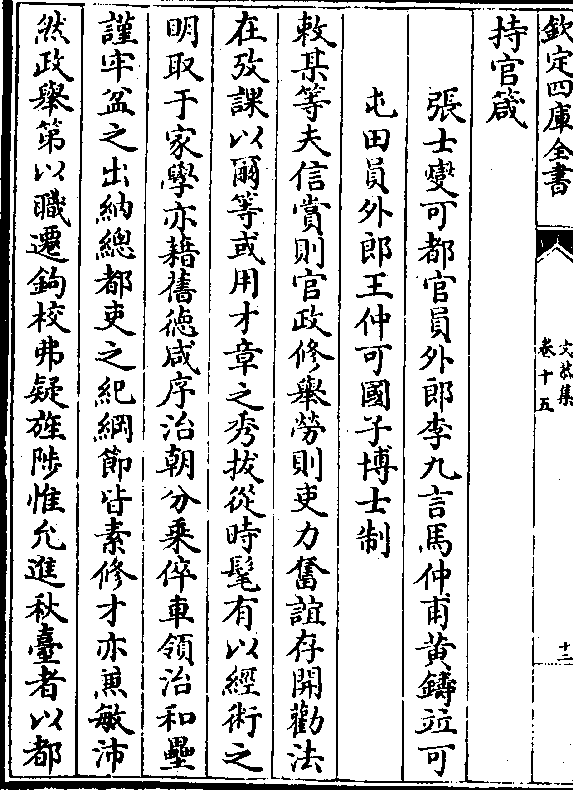 欽定四庫全書
文恭集
卷十五
十二
持官箴
張士燮可都官員外郎李九言馬仲甫黄鑄竝可
屯田員外郎王仲可國子博士制
敕某等夫信賞則官政修舉勞則吏力奮誼存開勸法
在攷課以爾等或用才章之秀拔從時髦有以經術之
明取于家學亦藉舊德咸序治朝分乘倅車領治和壘
謹牢盆之出納總都吏之紀綱節皆素修才亦兼敏沛
然政舉第以職遷鉤校弗疑旌陟惟允進秋臺者以都